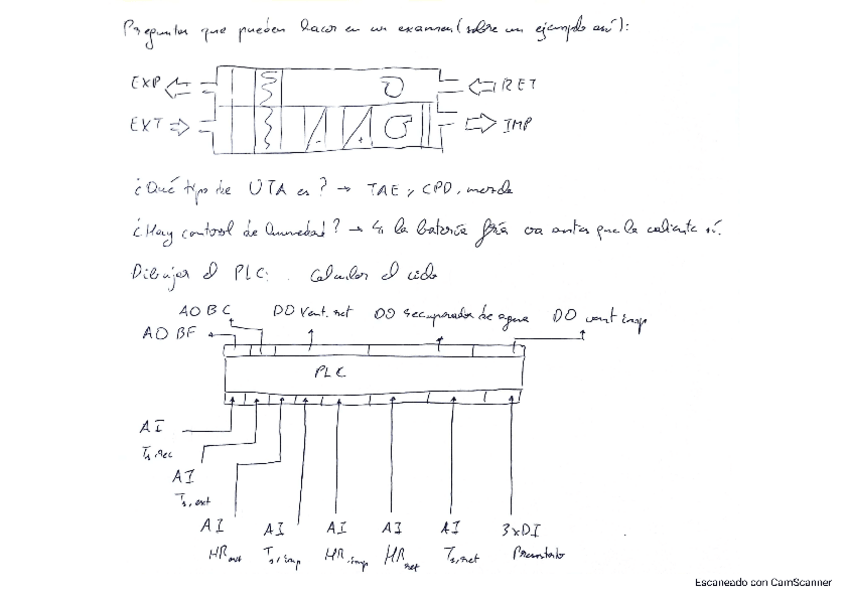 Preguntas que pueden hacer en un examen (sobre un ejemplo así):
EXP RET
EXT IMP
¿Qué tipo de UTA es? → TAE y CPD, mezcla
¿Hay control de humedad? → Si la batería fría va antes que la caliente sí.
Dibujar el PLC: Calcular el ciclo
AO BC DO Vent. ret DO recuperador de agua DO vent imp
AO BF
PLC
AI
Ts,rec
AI
Ts,ext
AI AI AI AI AI 3xDI
HRext Ts,imp HRimp HRret Ts,ret Presostato
Escaneado con CamScanner